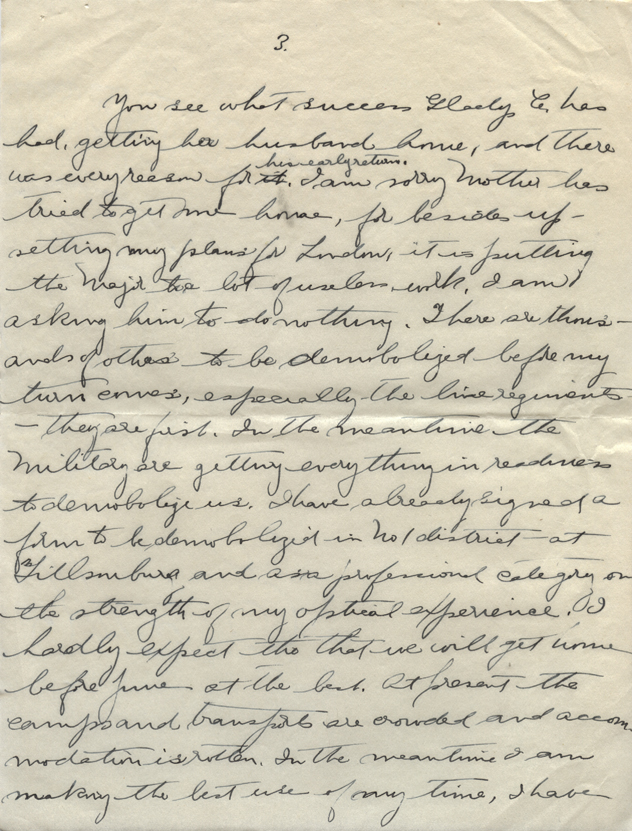 3.
You see what success Glady C. has
had, getting her husband home, and there
was every reason for it. his early return. I am sorry Mother has
tried to get me home, for besides up-
setting my plans for London, it is putting
the Major to a lot of useless work. I am
asking him to do nothing. There are thous-
ands of others to be demobolized before my
turn comes, especially the line regiments-
- they are first. In the meantime the
Military are getting everything in readiness
to demobolize us. I have already signed a
form to be demobolized in No 1 district - at
Tillsonburg and as a professional category on
the strength of my optical experience. I
hardly expect tho that we will get home
before June at the best. At present the
camps and transports are crowded and accom-
modation is rotten. In the meantime I am
making the best use of my time, I have